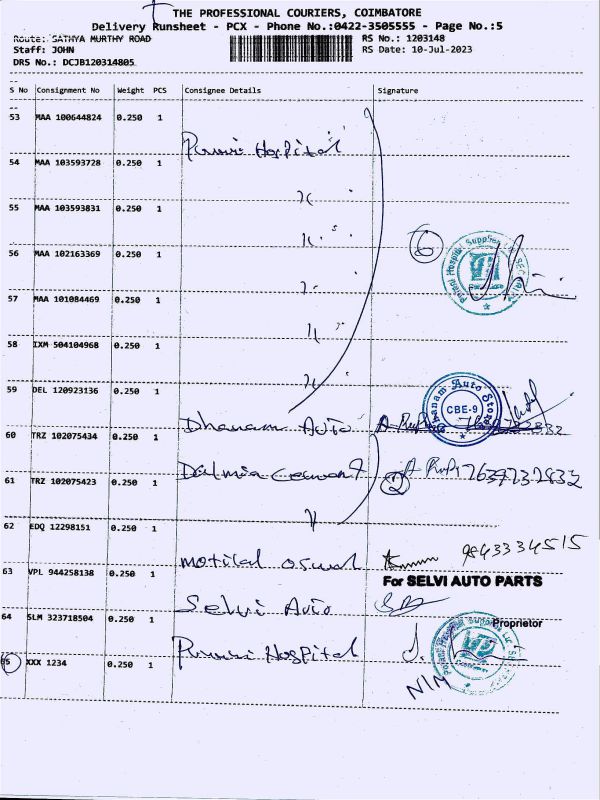 THE PROFESSIONAL COURIERS, COIMBATORE
Delivery Runsheet - PCX - Phone No.:0422-3505555 - Page No.:5
Route: SATHYA MURTHY ROAD RS No.: 1203148
Staff: JOHN RS Date: 10-Jul-2023
DRS No.: DCJB120314805
S No Consignment No Weight PCS Consignee Details Signature
53 MAA 100644824 0.250 1
Hospital
54 MAA 103593728 0.250 1
55 MAA 103593831 0.250 1
56 MAA 102163369 0.250 1
6
57 MAA 101084469 0.250 1
58 IXM 504104968 0.250 1
59 DEL 120923136 0.250 1
Dhanam Auto Stores
CBE-9
Dhanam Auto
60 TRZ 102075434 0.250 1
Dalmia Cement 2 7639732832
61 TRZ 102075423 0.250 1
62 EDQ 12298151 0.250 1
motilal oswal 9843334515
63 VPL 944258138 0.250 1
For SELVI AUTO PARTS
Selvi Auto
64 SLM 323718504 0.250 1
Proprietor
Hospital
65 XXX 1234 0.250 1
NIM